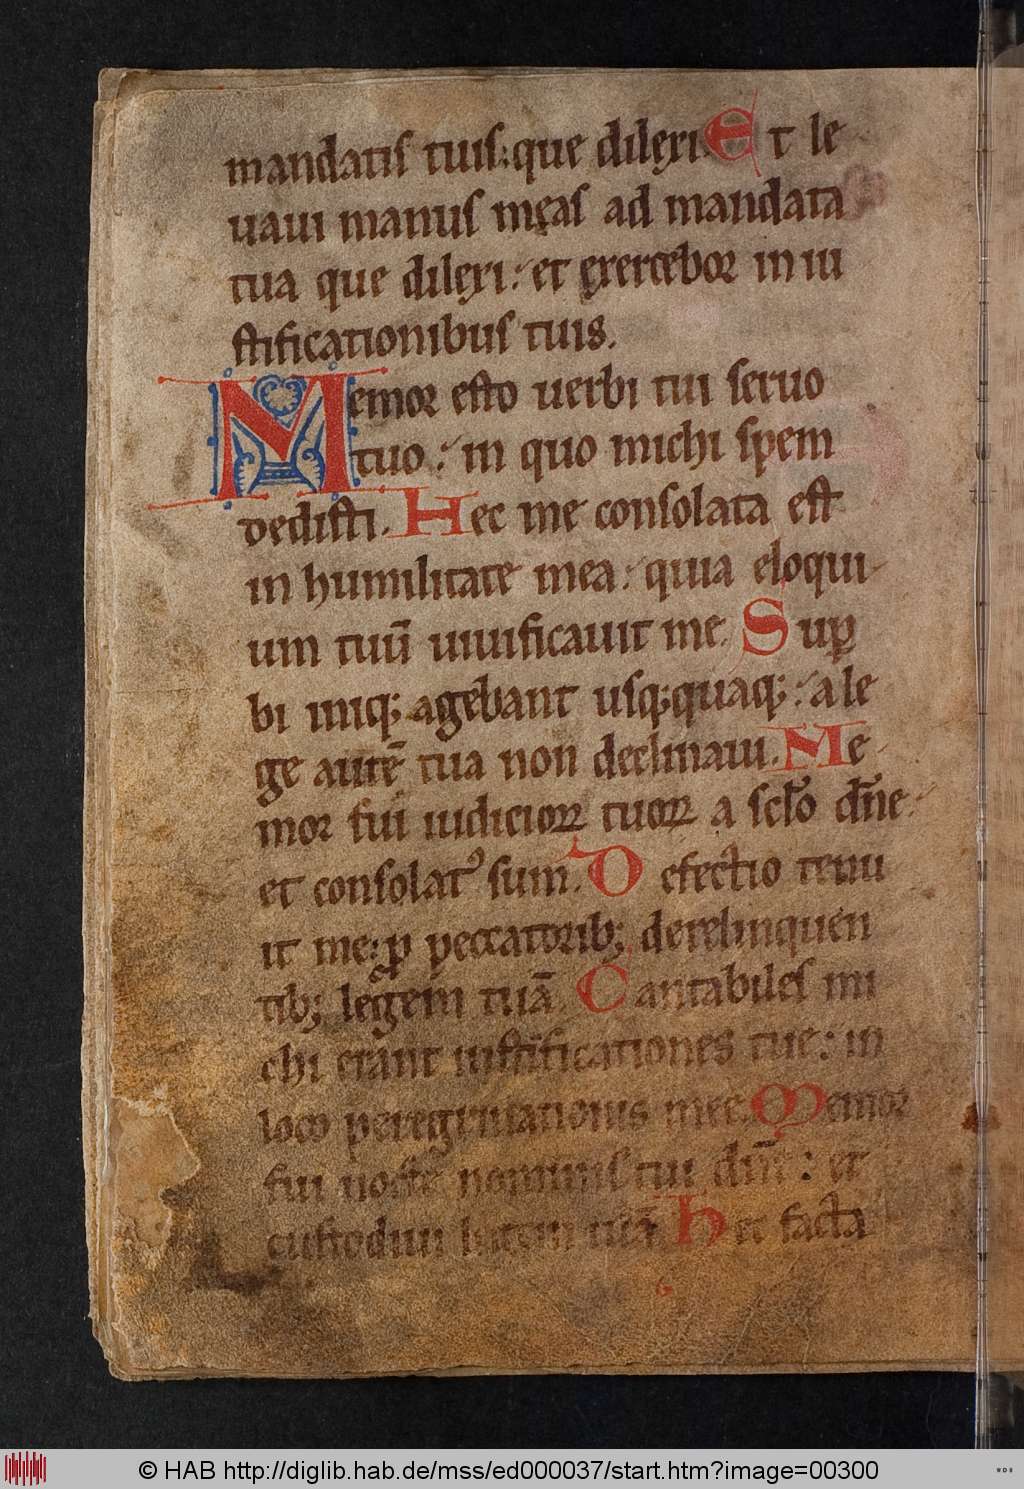 mandatis tuis; que dilexi. Et le
uaui manus meas ad mandata
tua que dilexi: et exercebor in iu
stificationibus tuis.
Memor esto uerbi tui seruo
tuo: in quo michi spem
dedisti. Hec me consolata est
in humilitate mea: quia eloqui-
um tuū uiuificauit me. Sup̱
bi iniq; agebant usq;quaq;: a le
ge autē tua non declinaui. Me
mor fui iudicioꝝ tuoꝝ a sclō dn̄e:
et consolatꝰ sum. Defectio tenu
it me: ꝓ peccatorib; derelinquen
tib; legem tuā. Cantabiles mi
chi erant iustificationes tue: in
loco peregrinationis mee. Memor
fui nocte nominis tui dn̄e: et
custodiui legem tuā. Hec facta
© HAB http://diglib.hab.de/mss/ed000037/start.htm?image=00300